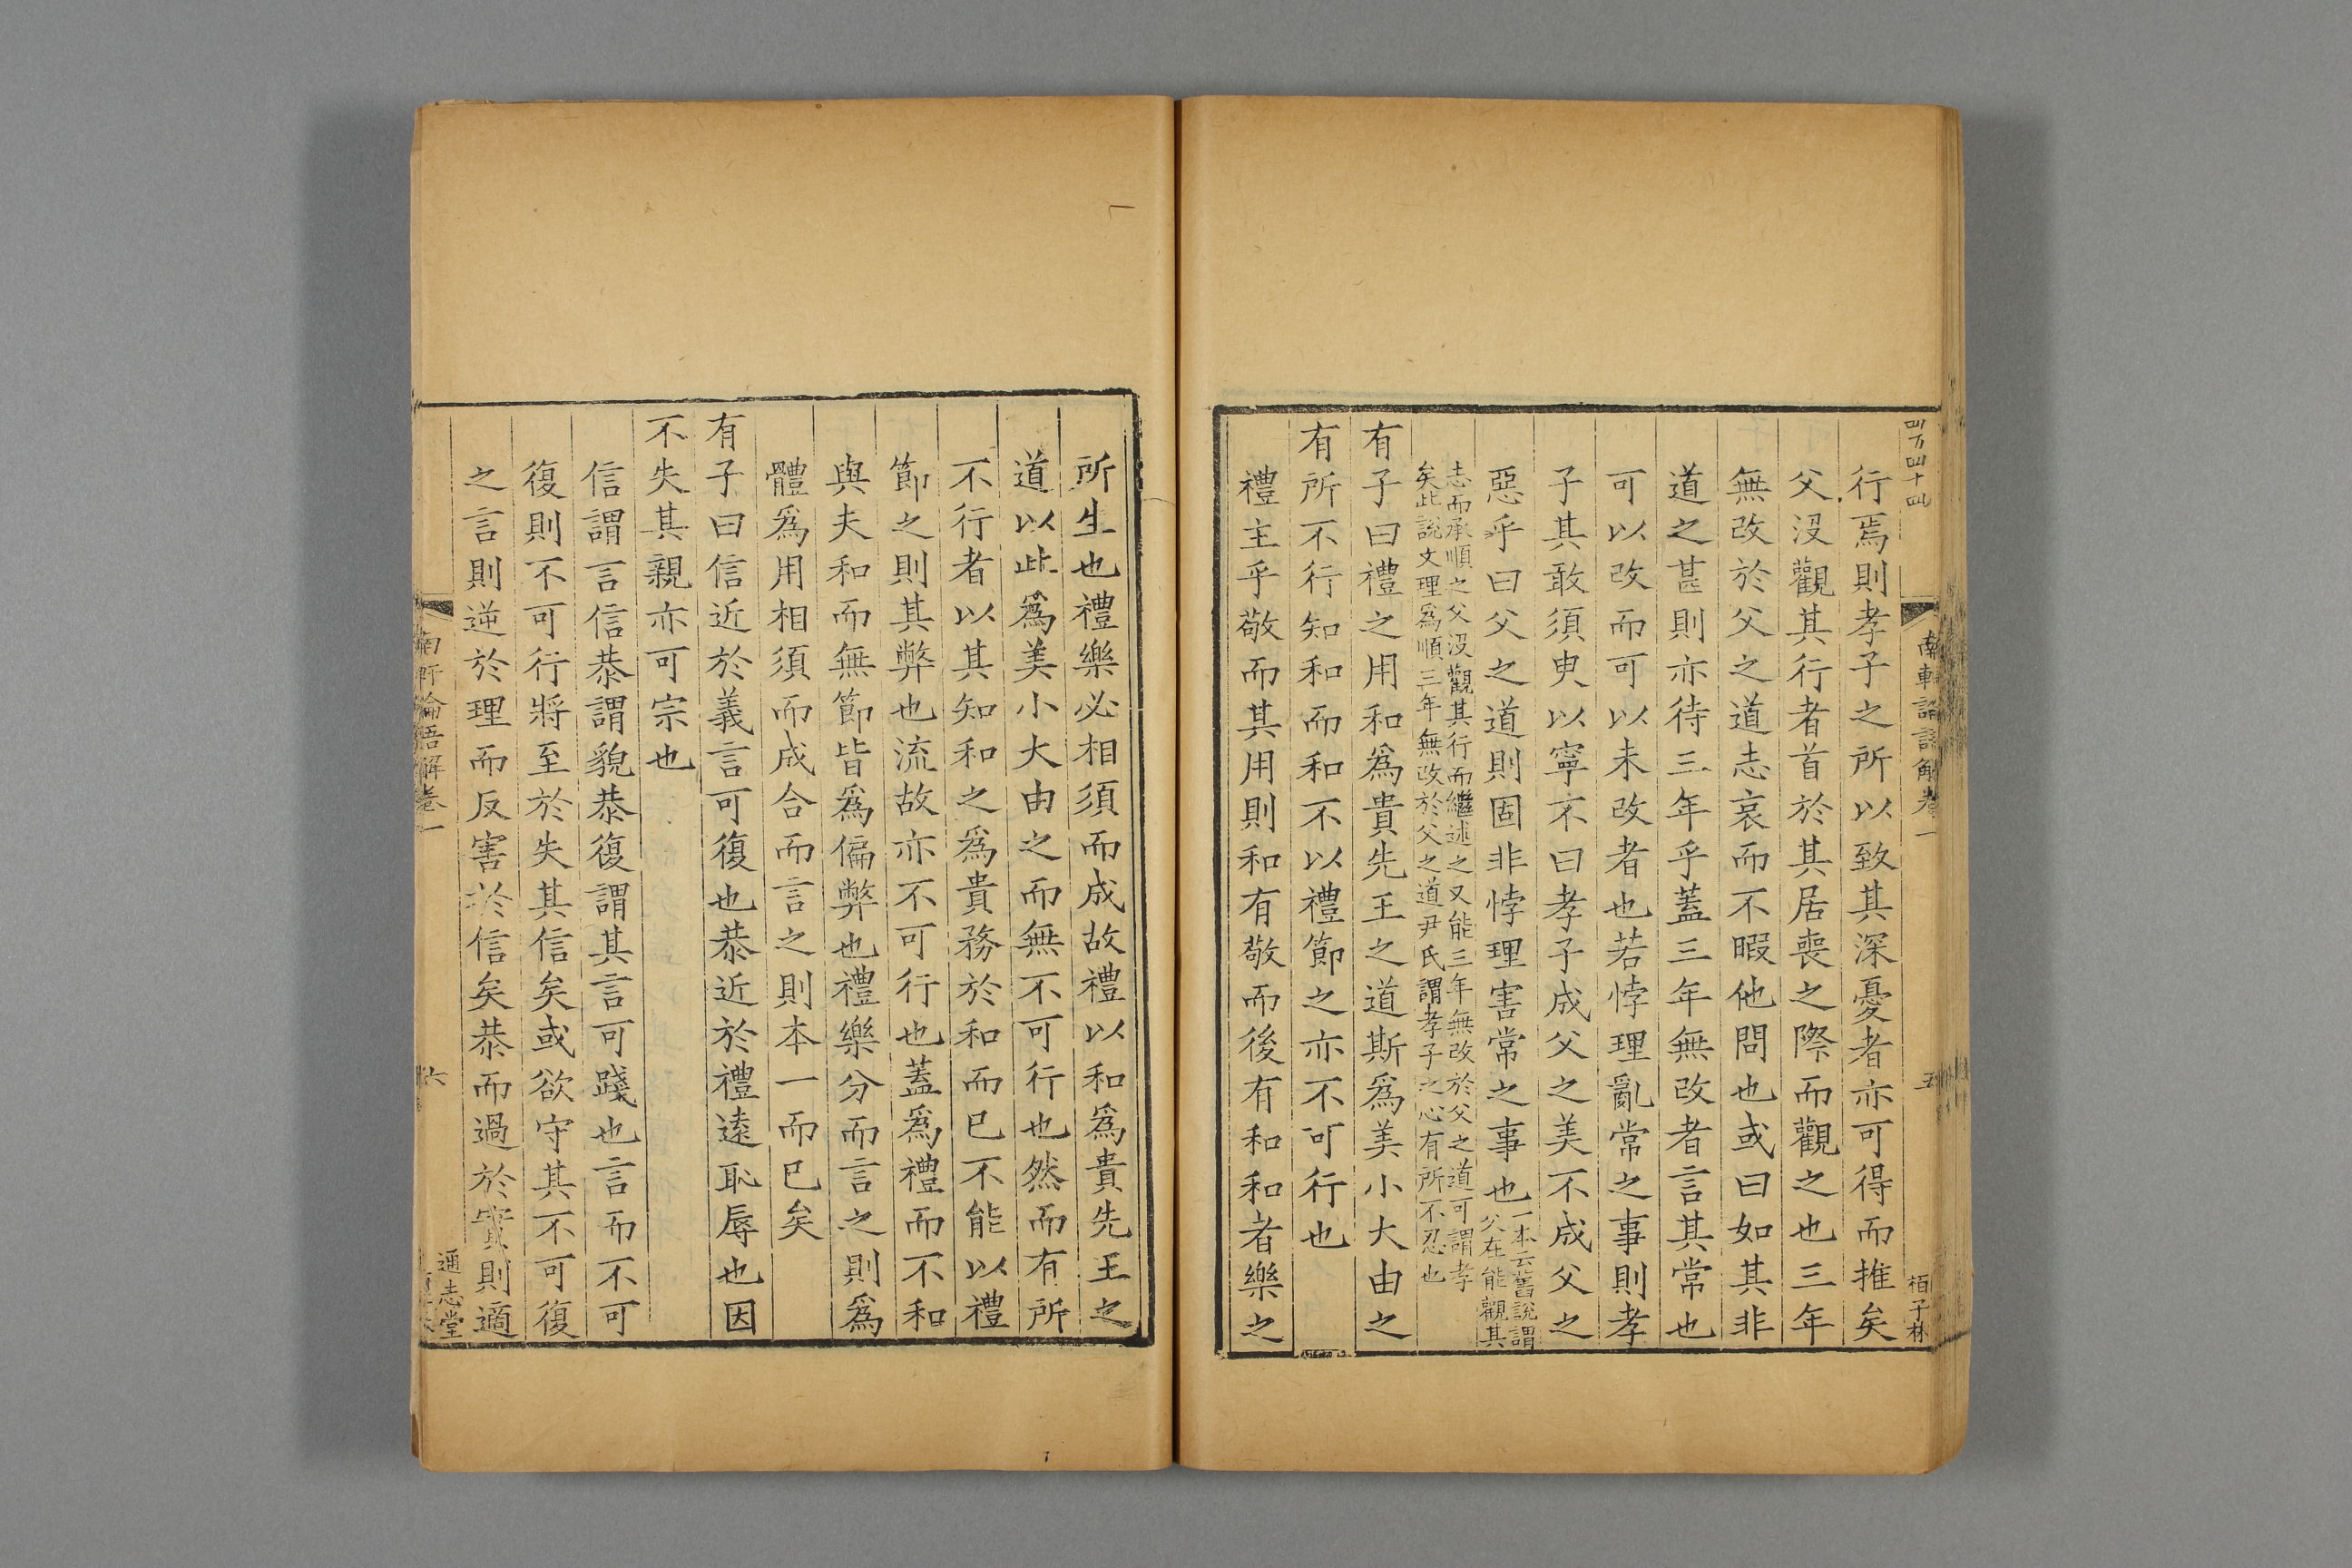 南軒論語解卷一
五
柏子林
行焉則孝子之所以致其深憂者亦可得而推矣
父沒觀其行者首於其居喪之際而觀之也三年
無改於父之道志哀而不暇他問也或曰如其非
道之甚則亦待三年乎蓋三年無改者言其常也
可以改而可以未改者也若悖理亂常之事則孝
子其敢須臾以寧不曰孝子成父之美不成父之
惡乎曰父之道則固非悖理害常之事也
一本云舊說謂
父在能觀其
志而承順之父沒觀其行而繼述之又能三年無改於父之道可謂孝
矣此說文理爲順三年無改於父之道尹氏謂孝子之心有所不忍也
有子曰禮之用和爲貴先王之道斯爲美小大由之
有所不行知和而和不以禮節之亦不可行也
禮主乎敬而其用則和有敬而後有和和者樂之
所生也禮樂必相須而成故禮以和爲貴先王之
道以此爲美小大由之而無不可行也然而有所
不行者以其知和之爲貴務於和而已不能以禮
節之則其弊也流故亦不可行也蓋爲禮而不和
與夫和而無節皆爲偏弊也禮樂分而言之則爲
體爲用相須而成合而言之則本一而已矣
有子曰信近於義言可復也恭近於禮遠恥辱也因
不失其親亦可宗也
信謂言信恭謂貌恭復謂其言可踐也言而不可
復則不可行將至於失其信矣或欲守其不可復
之言則逆於理而反害於信矣恭而過於實則適
南軒論語解卷一
六
通志堂